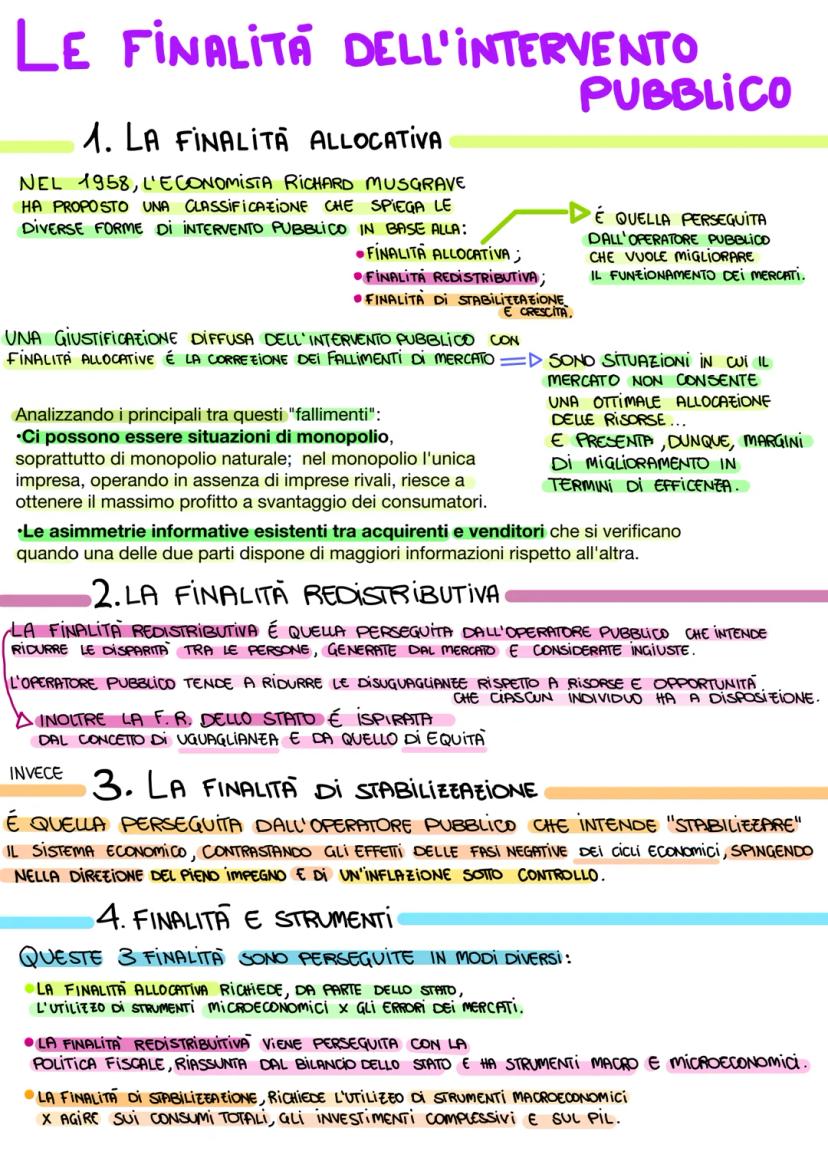 LE FINALITÀ DELL'INTERVENTO
PUBBLICO
1. LA FINALITÀ ALLOCATIVA
NEL 1958, L'ECONOMISTA RICHARD MUSGRAVE
HA PROPOSTO UNA CLASSIFICAZIONE CHE SPIEGA LE
DIVERSE FORME DI INTERVENTO PUBBLICO IN BASE ALLA:
• FINALITÀ ALLOCATIVA;
• FINALITÀ REDISTRIBUTIVA;
• FINALITÀ DI STABILIZZAZIONE
E CRESCITA.
É QUELLA PERSEGUITA
DALL'OPERATORE PUBBLICO
CHE VUOLE MIGLIORARE
IL FUNZIONAMENTO DEI MERCATI.
UNA GIUSTIFICAZIONE DIFFUSA DELL'INTERVENTO PUBBLICO CON
FINALITÀ ALLOCATIVE É LA CORREZIONE DEI FALLIMENTI DI MERCATO
SONO SITUAZIONI IN CUI IL
MERCATO NON CONSENTE
UNA OTTIMALE ALLOCAZIONE
DELLE RISORSE...
E PRESENTA, DUNQUE, MARGINI
DI MIGLIORAMENTO IN
TERMINI DI EFFICENZA.
Analizzando i principali tra questi "fallimenti":
•Ci possono essere situazioni di monopolio,
soprattutto di monopolio naturale; nel monopolio l'unica
impresa, operando in assenza di imprese rivali, riesce a
ottenere il massimo profitto a svantaggio dei consumatori.
•Le asimmetrie informative esistenti tra acquirenti e venditori che si verificano
quando una delle due parti dispone di maggiori informazioni rispetto all'altra.
2. LA FINALITÀ REDISTRIBUTIVA
LA FINALITÀ REDISTRIBUTIVA É QUELLA PERSEGUITA DALL'OPERATORE PUBBLICO CHE INTENDE
RIDURRE LE DISPARITÀ TRA LE PERSONE, GENERATE DAL MERCATO E CONSIDERATE INGIUSTE.
L'OPERATORE PUBBLICO TENDE A RIDURRE LE DISUGUAGLIANZE RISPETTO A RISORSE E OPPORTUNITÀ
CHE CIASCUN INDIVIDUO HA A DISPOSIZIONE.
INOLTRE LA F. R. DELLO STATO É ISPIRATA
DAL CONCETTO DI UGUAGLIANZA E DA QUELLO DI EQUITÀ
INVECE
3. LA FINALITÀ DI STABILIZZAZIONE
É QUELLA PERSEGUITA DALL'OPERATORE PUBBLICO CHE INTENDE "STABILIZZARE"
IL SISTEMA ECONOMICO, CONTRASTANDO GLI EFFETTI DELLE FASI NEGATIVE DEI CICLI ECONOMICI, SPINGENDO
NELLA DIREZIONE DEL PIENO IMPEGNO E DI UN'INFLAZIONE SOTTO CONTROLLO.
4. FINALITÀ E STRUMENTI
QUESTE 3 FINALITÀ SONO PERSEGUITE IN MODI DIVERSI:
• LA FINALITÀ ALLOCATIVA RICHIEDE, DA PARTE DELLO STATO,
L'UTILIZZO DI STRUMENTI MICROECONOMICI X GLI ERRORI DEI MERCATI.
• LA FINALITÀ REDISTRIBUITIVA VIENE PERSEGUITA CON LA
POLITICA FISCALE, RIASSUNTA DAL BILANCIO DELLO STATO E HA STRUMENTI MACRO E MICROECONOMICI.
• LA FINALITÀ DI STABILIZZAZIONE, RICHIEDE L'UTILIZZO DI STRUMENTI MACROECONOMICI
X AGIRE SUI CONSUMI TOTALI, GLI INVESTIMENTI COMPLESSIVI E SUL PIL.